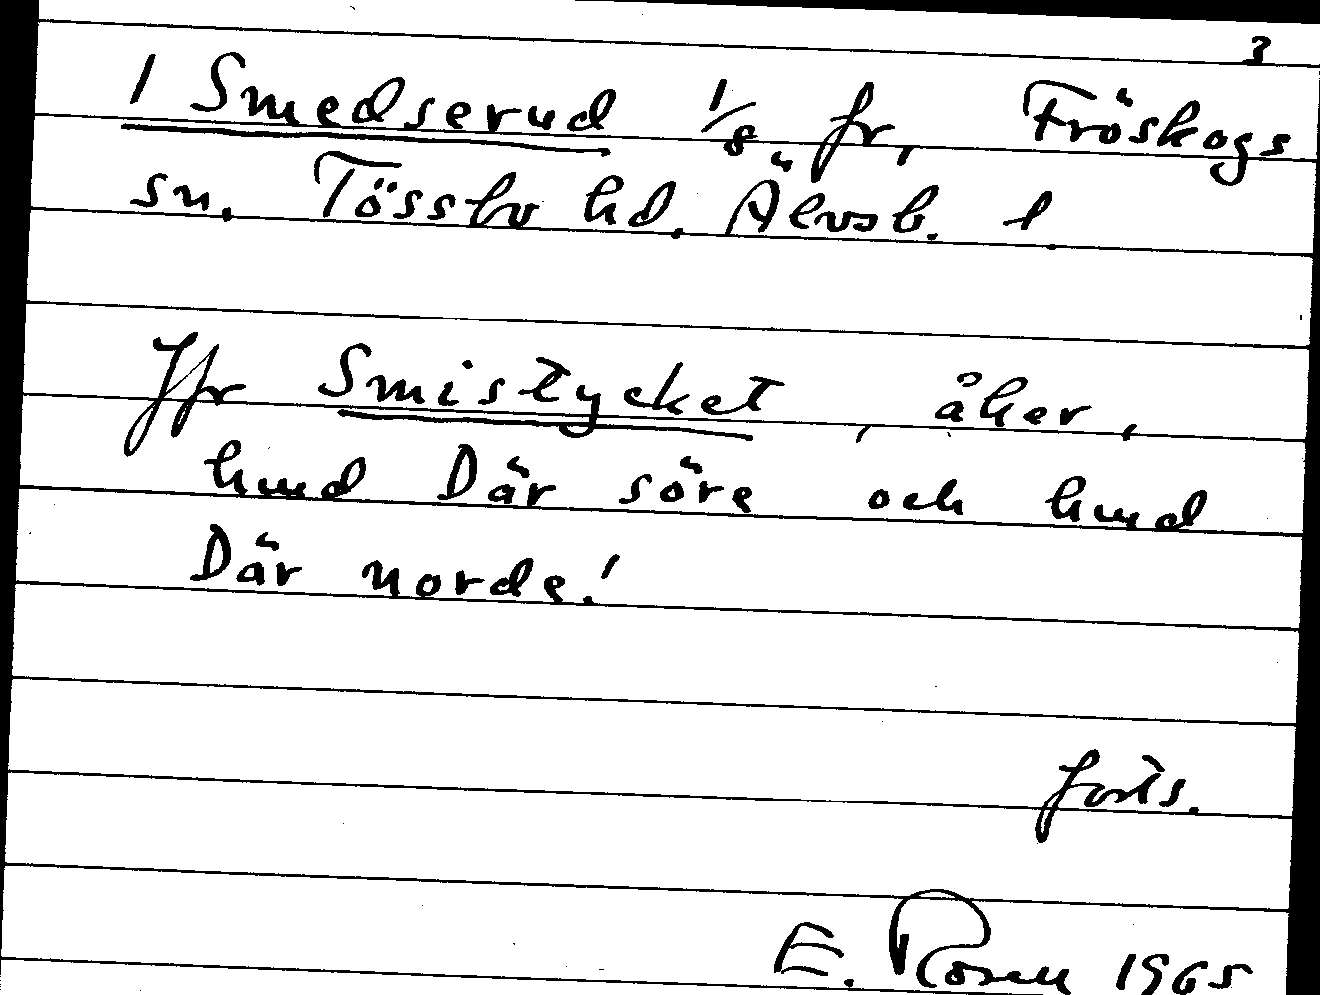 3
1 Smedserud 1/8 fr, Fröskogs
sn. Tössbo hd. Älvsb. l.
Jfr Smistycket, åker,
hmd Där söre och hmd
Där norde!
forts.
E. Rosell 1965